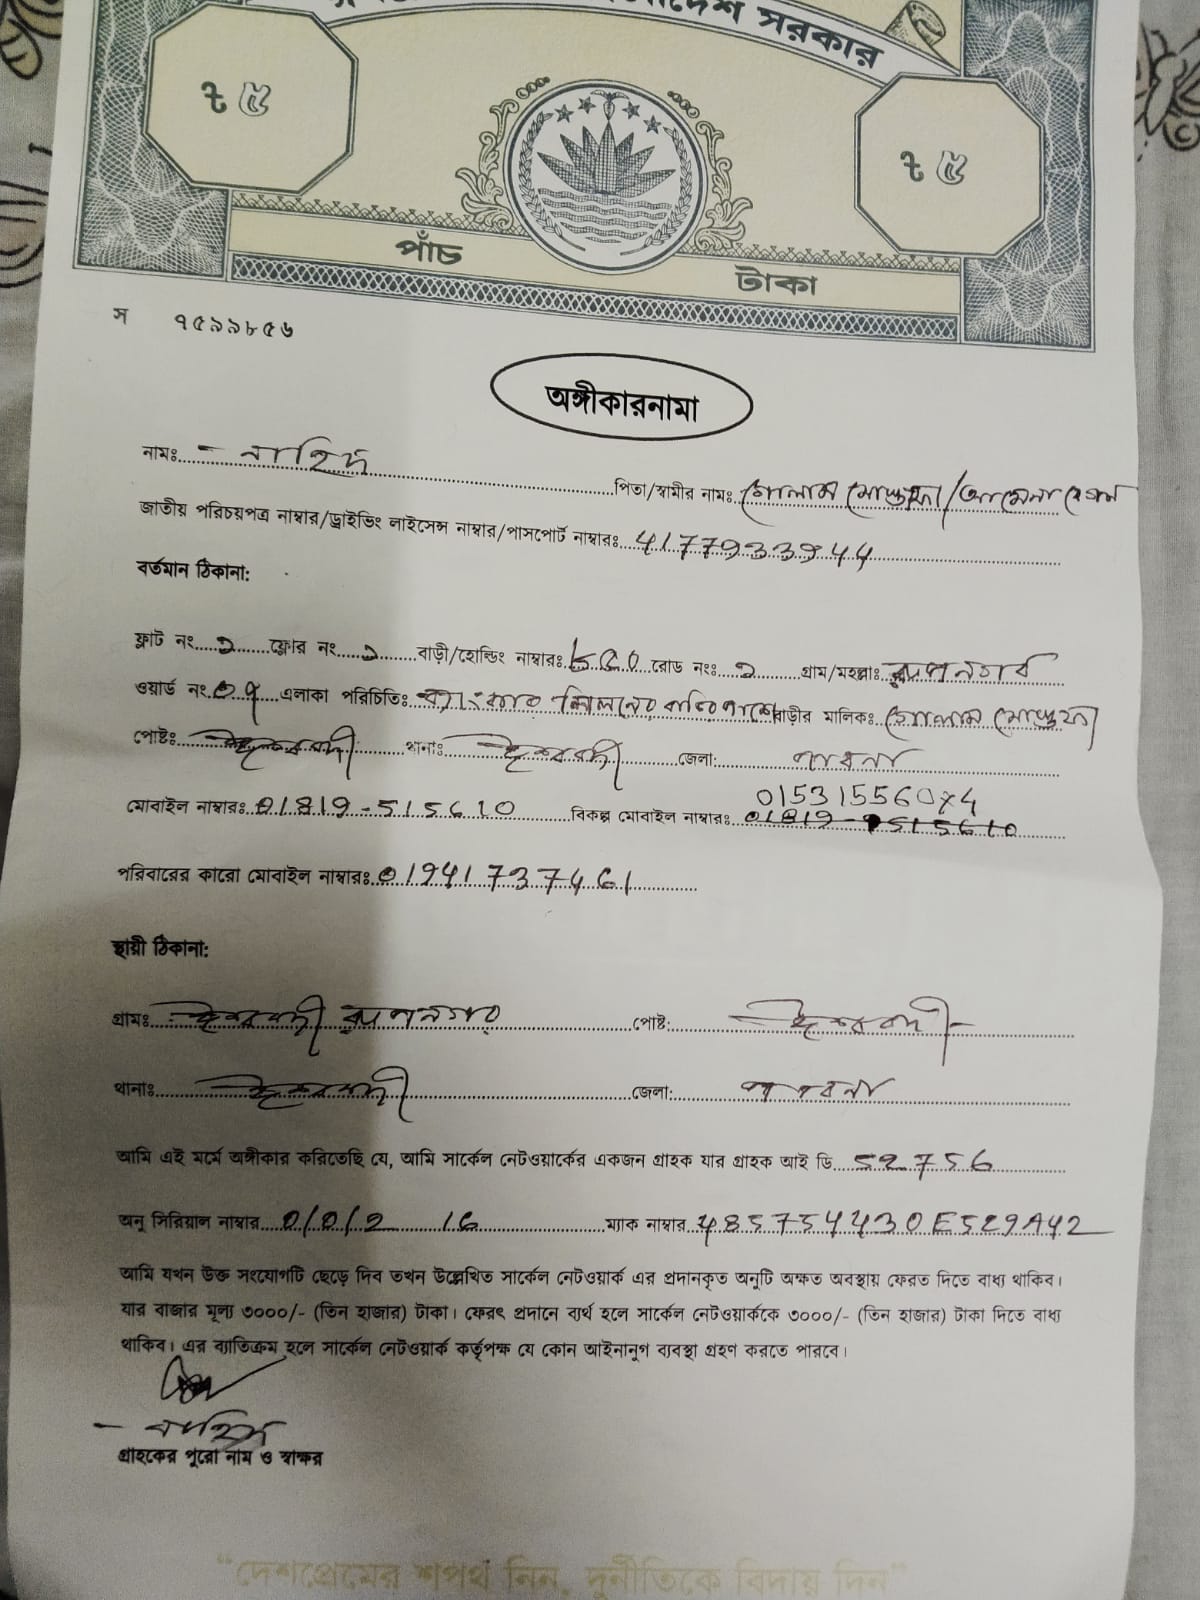 বাংলাদেশ সরকার
৳ ৫
৳ ৫
পাঁচ টাকা
স ৭৫৯৯৮৫৬
অঙ্গীকারনামা
নামঃ - নাহিদ পিতা/স্বামীর নামঃ গোলাম মোস্তফা/আমেনা বেগম
জাতীয় পরিচয়পত্র নাম্বার/ড্রাইভিং লাইসেন্স নাম্বার/পাসপোর্ট নাম্বারঃ 4177933944
বর্তমান ঠিকানা:
ফ্লাট নং ১ ফ্লোর নং ১ বাড়ী/হোল্ডিং নাম্বারঃ রোড নংঃ ১ গ্রাম/মহল্লাঃ রূপনগর
ওয়ার্ড নং ০৭ এলাকা পরিচিতিঃ বাড়ির পাশে বাড়ীর মালিকঃ গোলাম মোস্তফা
পোষ্টঃ ঈশ্বরদী থানাঃ ঈশ্বরদী জেলা: পাবনা
মোবাইল নাম্বারঃ 01819-515610 বিকল্প মোবাইল নাম্বারঃ
পরিবারের কারো মোবাইল নাম্বারঃ 01941737461
স্থায়ী ঠিকানা:
গ্রামঃ ঈশ্বরদী রূপনগর পোষ্ট: ঈশ্বরদী
থানাঃ ঈশ্বরদী জেলা: পাবনা
আমি এই মর্মে অঙ্গীকার করিতেছি যে, আমি সার্কেল নেটওয়ার্কের একজন গ্রাহক যার গ্রাহক আই ডি 52756
অনু সিরিয়াল নাম্বার 0/0/2 16 ম্যাক নাম্বার 485754430E529A42
আমি যখন উক্ত সংযোগটি ছেড়ে দিব তখন উল্লেখিত সার্কেল নেটওয়ার্ক এর প্রদানকৃত অনুটি অক্ষত অবস্থায় ফেরত দিতে বাধ্য থাকিব।
যার বাজার মূল্য ৩০০০/- (তিন হাজার) টাকা। ফেরৎ প্রদানে ব্যর্থ হলে সার্কেল নেটওয়ার্ককে ৩০০০/- (তিন হাজার) টাকা দিতে বাধ্য
থাকিব। এর ব্যাতিক্রম হলে সার্কেল নেটওয়ার্ক কর্তৃপক্ষ যে কোন আইনানুগ ব্যবস্থা গ্রহণ করতে পারবে।
- নাহিদ
গ্রাহকের পুরো নাম ও স্বাক্ষর
"দেশপ্রেমের শপথ নিন, দুর্নীতিকে বিদায় দিন"